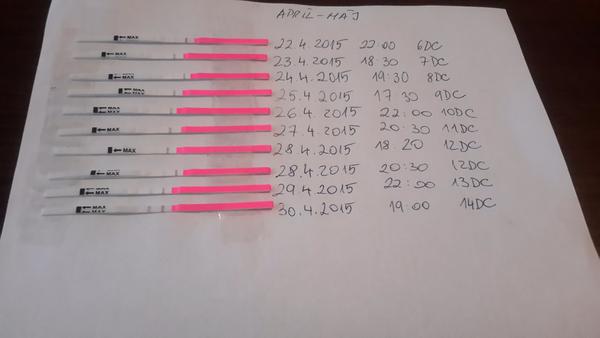 APRÍL - MÁJ
MAX 22.4.2015 22:00 6DC
MAX 23.4.2015 18:30 7DC
MAX 24.4.2015 19:30 8DC
MAX 25.4.2015 17 30 9DC
MAX 26.4.2015 22:00 10DC
MAX 27.4.2015 20:30 11DC
MAX 28.4.2015 18:20 12DC
MAX 28.4.2015 20:30 12DC
MAX 29.4.2015 22:00 13DC
MAX 30.4.2015 19:00 14DC